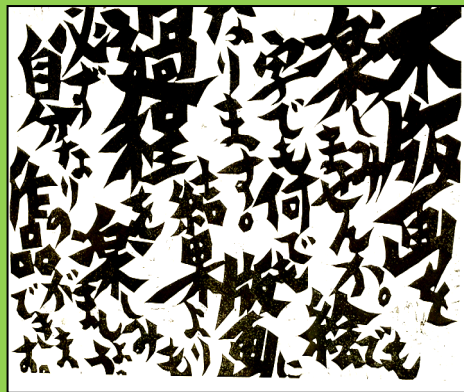 木版画を
楽しみませんか。絵でも
字でも何でも版画に
なります。結果よりも
過程を楽しみましょう
必ず
自分なりの作品ができます。